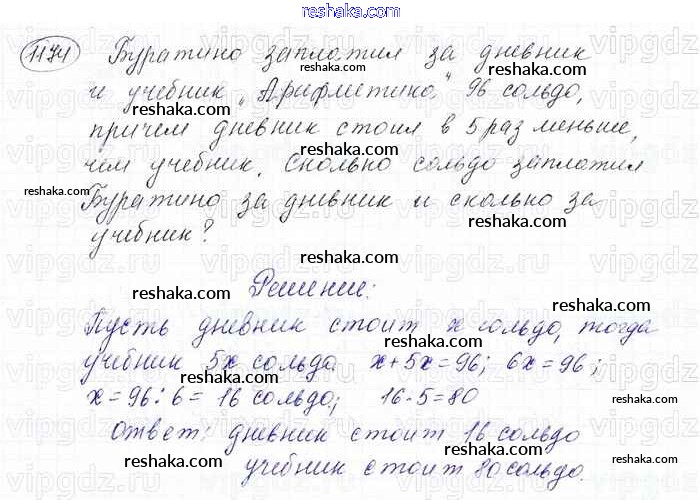 reshaka.com
1174 Буратино заплатил за дневник
reshaka.com
и учебник „Арифметика" 96 сольдо,
reshaka.com
причем дневник стоил в 5 раз меньше,
reshaka.com
чем учебник. Сколько сольдо заплатил
reshaka.com reshaka.com
Буратино за дневник и сколько за
reshaka.com
учебник?
reshaka.com
Решение:
reshaka.com
Пусть дневник стоит x сольдо, тогда
reshaka.com
учебник 5x сольдо. x+5x=96; 6x=96;
reshaka.com reshaka.com
x=96:6= 16 сольдо; 16·5=80
reshaka.com
Ответ: дневник стоит 16 сольдо
reshaka.com reshaka.com
учебник стоит 80 сольдо.
vipgdz.ru